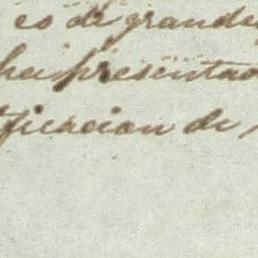 es de grande
ha presentad
ficacion de